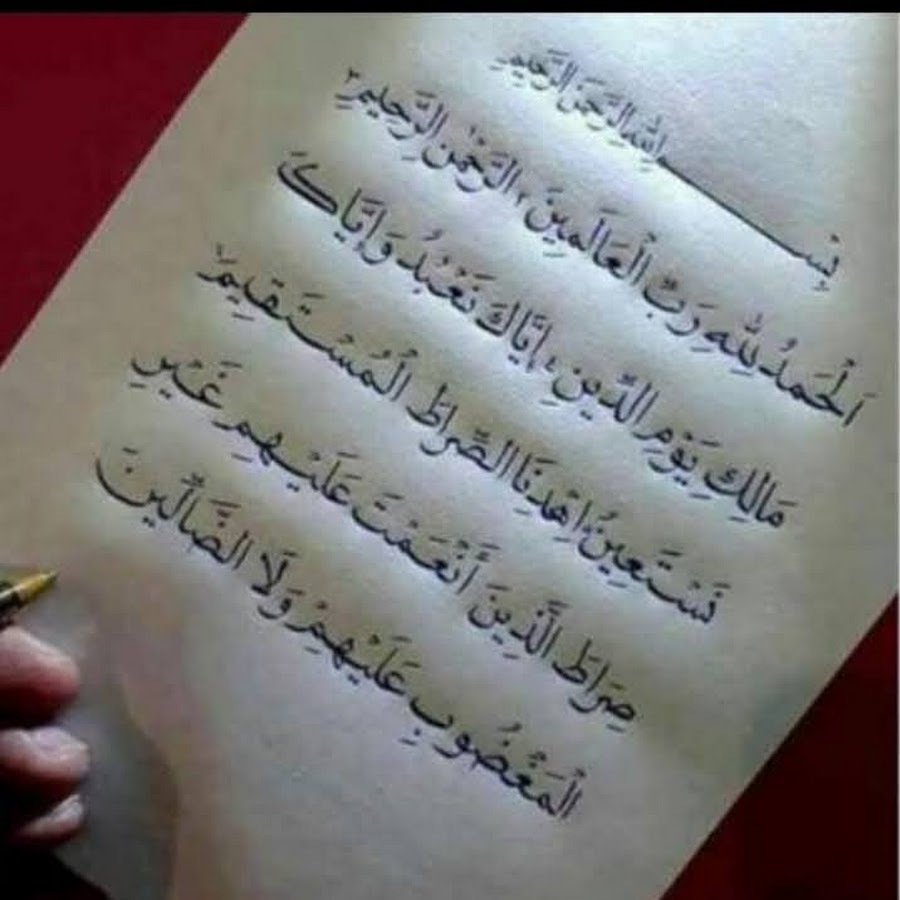 بِسْمِ اللهِ الرَّحْمَنِ الرَّحِيمِ
اَلْحَمْدُ لِلّٰهِ رَبِّ الْعَالَمِينَ ٢ الرَّحْمٰنِ الرَّحِيمِ ٣
مَالِكِ يَوْمِ الدِّينِ ٤ إِيَّاكَ نَعْبُدُ وَإِيَّاكَ
نَسْتَعِينُ ٥ اِهْدِنَا الصِّرَاطَ الْمُسْتَقِيمَ ٦
صِرَاطَ الَّذِينَ أَنْعَمْتَ عَلَيْهِمْ غَيْرِ
الْمَغْضُوبِ عَلَيْهِمْ وَلَا الضَّالِّينَ